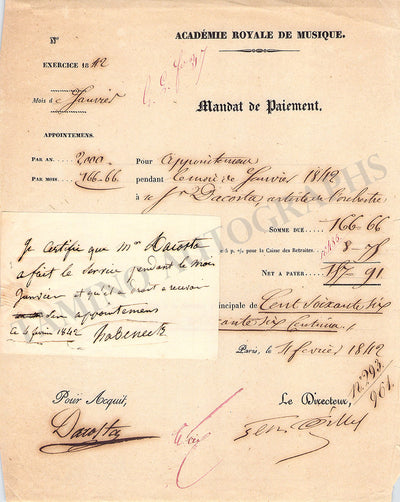 ACADÉMIE ROYALE DE MUSIQUE.
N°
EXERCICE 1842
Mois de Janvier
Mandat de Paiement.
APPOINTEMENS.
PAR AN. 2000-
PAR MOIS. 166-66
Pour appointemens
pendant le mois de Janvier 1842
à Mr Dacosta artiste de l'orchestre
SOMME DUE 166-66
p. %. pour la Caisse des Retraites 8-75
NET A PAYER 157 91
Je certifie que Mr Dacosta
a fait le service pendant le mois
Janvier et qu'il a droit a recevoir
son appointemens
Ce 4 fevrier 1842 Habeneck
principale de Cent Soixante six
Soixante six Centimes
Paris, le 4 fevrier 1842
Pour Acquit,
Le Directeur,
Dacosta
TAMINO AUTOGRAPHS